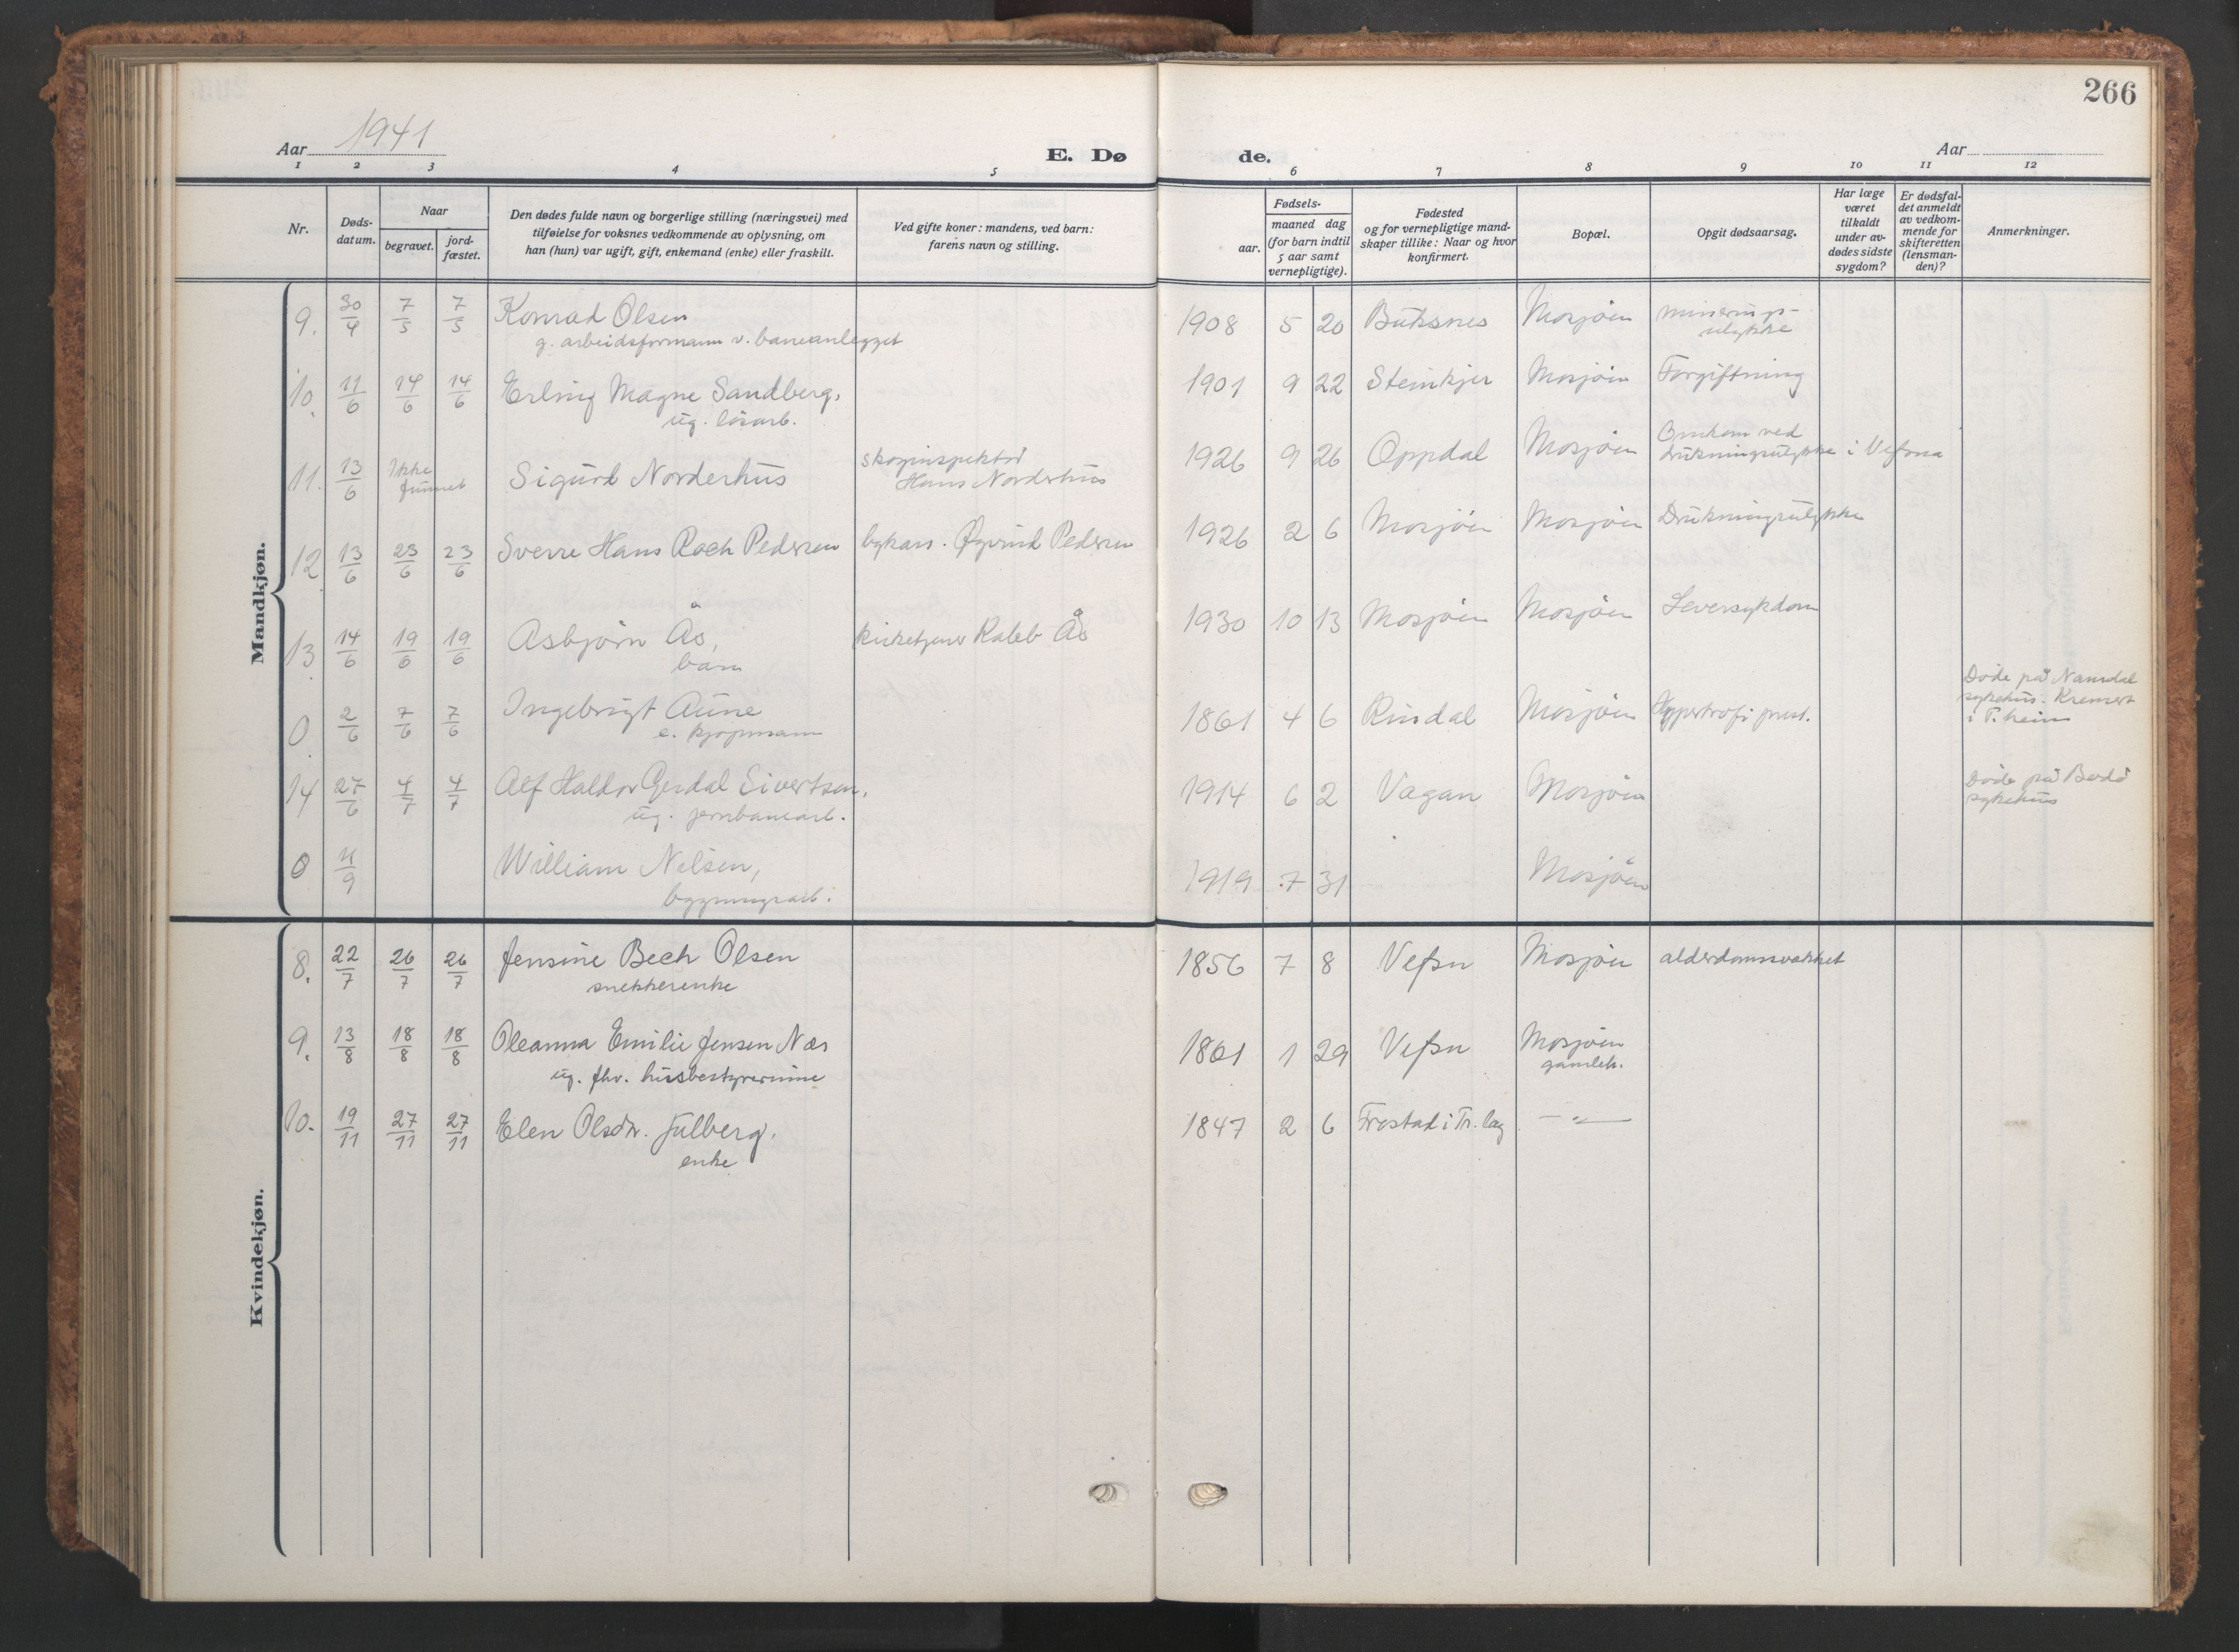 266
Aar 1941
E. Dø de.
Aar
1 2 3 4 5 6 7 8 9 10 11 12
Nr.
Døds-
datum.
Naar
begravet.
jord-
fæstet.
Den dødes fulde navn og borgerlige stilling (næringsvei) med
tilføielse for voksnes vedkommende av oplysning, om
han (hun) var ugift, gift, enkemand (enke) eller fraskilt.
Ved gifte koner: mandens, ved barn:
farens navn og stilling.
Fødsels-
aar.
maaned dag
(for barn indtil
5 aar samt
vernepligtige).
Fødested
og for vernepligtige mand-
skaper tillike: Naar og hvor
konfirmert.
Bopæl.
Opgit dødsaarsag.
Har læge
været
tilkaldt
under av-
dødes sidste
sygdom?
Er dødsfal-
det anmeldt
av vedkom-
mende for
skifteretten
(lensman-
den)?
Anmerkninger.
Mandkjøn.
9. 30/4 7/5 7/5 Konrad Olsen 1908 5 20 Buksnes Mosjöen minerings-
g. arbeidsformann v. baneanlegget ulykke
10. 11/6 14/6 14/6 Erling Magne Sandberg, 1901 9 22 Steinkjer Mosjöen Forgiftning
ug. lösarb.
11. 13/6 Ikke funnet Sigurd Norderhus skoginspektör Hans Norderhus 1926 9 26 Oppdal Mosjöen Omkom ved
drukningsulykke i Vefsna
12 13/6 23/6 23/6 Sverre Hans Roch Pedersen bykass. Øyvind Pedersen 1926 2 6 Mosjöen Mosjöen Drukningsulykke
13. 14/6 19/6 19/6 Asbjörn Ås, kirketjener Kaleb Ås 1930 10 13 Mosjöen Mosjöen Leversykdom
barn
0. 2/6 7/6 7/6 Ingebrigt Aune 1861 4 6 Rindal Mosjöen Hypertrofi prost. Döde på Namdal
e. kjöpmann sykehus. Kremert
i T.heim
14 27/6 4/7 4/7 Alf Haldor Gerdal Sivertsen, 1914 6 2 Vågan Mosjöen Döde på Bodö
ug. jernbanearb. sykehus
0 4/9 William Nilsen, 1919 7 31 Mosjöen
bygningsarb.
Kvindekjøn.
8. 22/7 26/7 26/7 Jensine Bech Olsen 1856 7 8 Vefsn Mosjöen alderdomssvakhet
snekkerenke
9. 13/8 18/8 18/8 Oleanna Emilie Jensen Næs 1861 1 29 Vefsn Mosjöen
ug. fhv. husbestyrerinne gamleh.
10. 19/11 27/11 27/11 Elen Olsdtr. Julberg, 1847 2 6 Frostad i Tr. lag —"—
enke